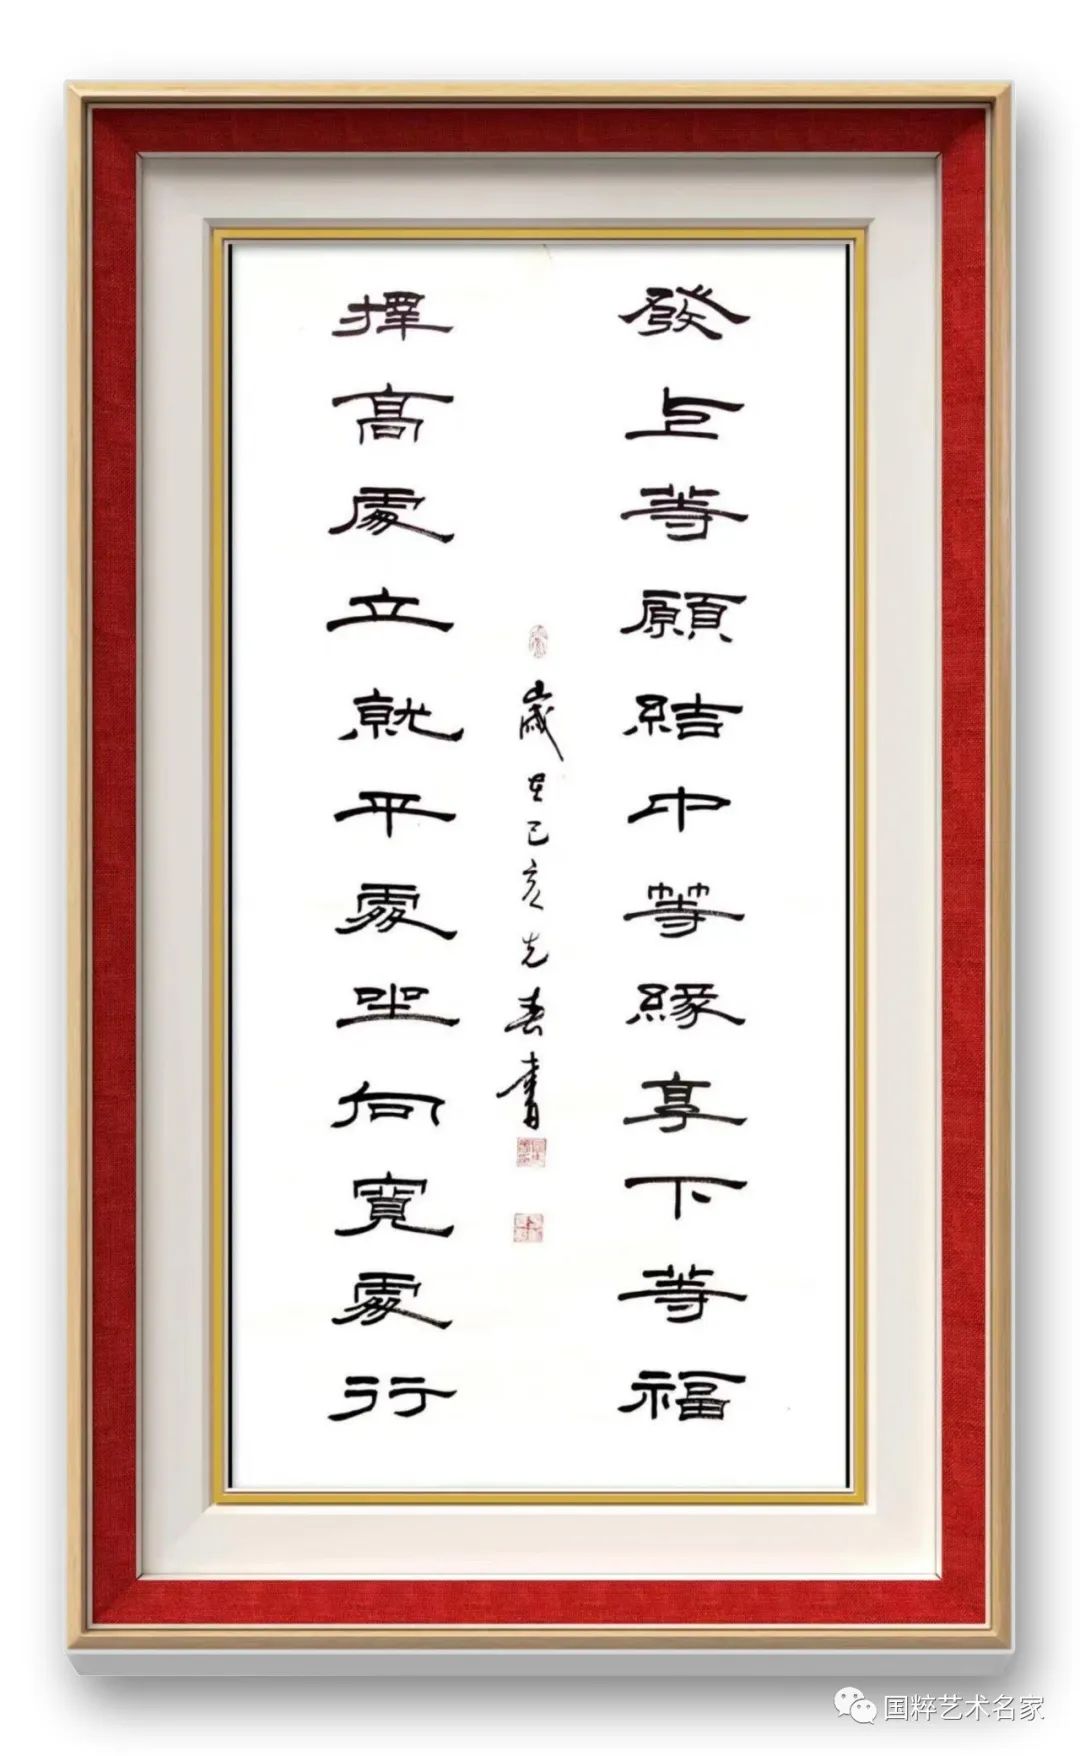 發上等願結中等緣享下等福
擇高處立就平處坐向寬處行
歲在己亥先春書
国粹艺术名家